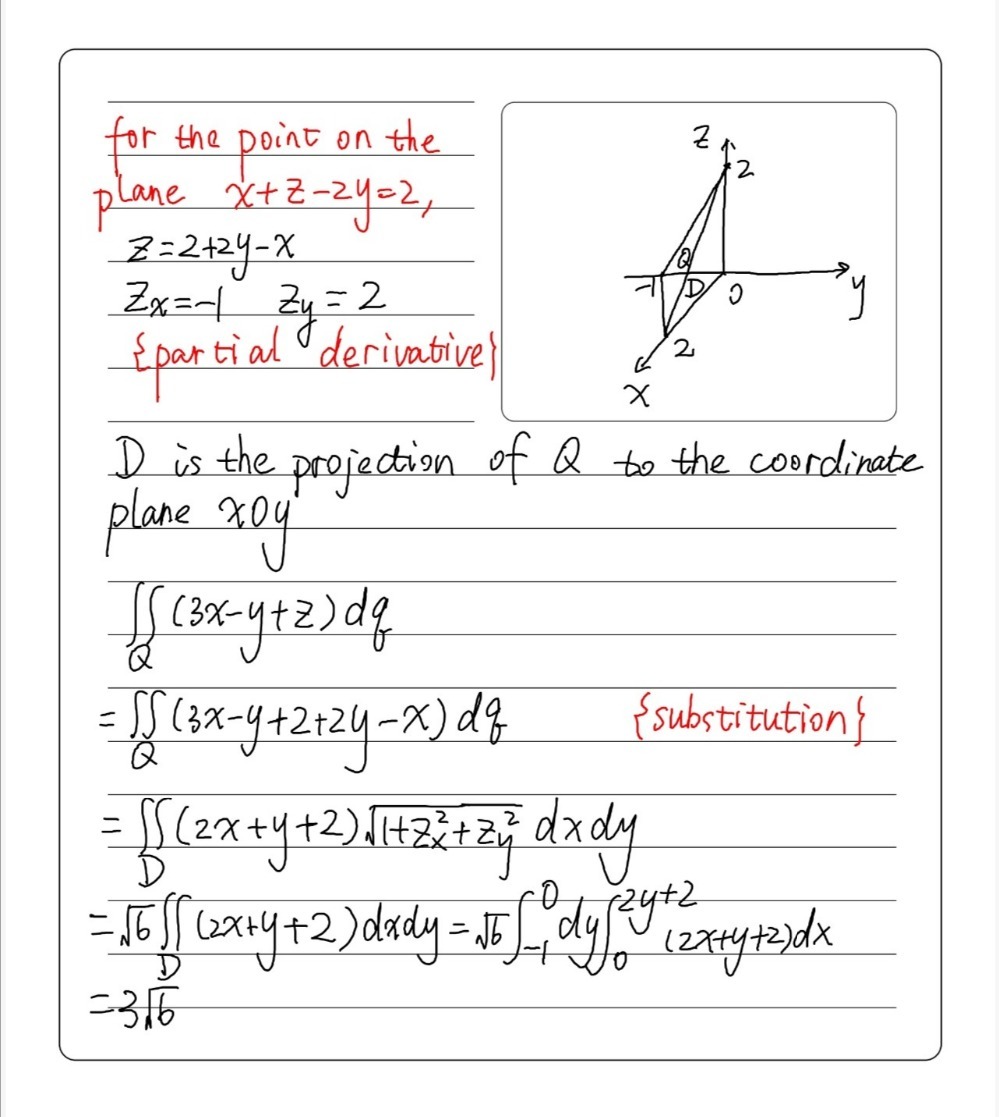 for the point on the
plane x+z-2y=2,
z=2+2y-x
Zx=-1 Zy=2
{partial derivative}
z
2
Q
-1
D
0
y
2
x
D is the projection of Q to the coordinate
plane xOy
∬_Q (3x-y+z)dq
=∬_Q (3x-y+2+2y-x)dq {substitution}
=∬_D (2x+y+2)√(1+Zx²+Zy²) dxdy
=√6∬_D (2x+y+2)dxdy=√6∫_{-1}^{0}dy∫_0^{2y+2}(2x+y+2)dx
=3√6